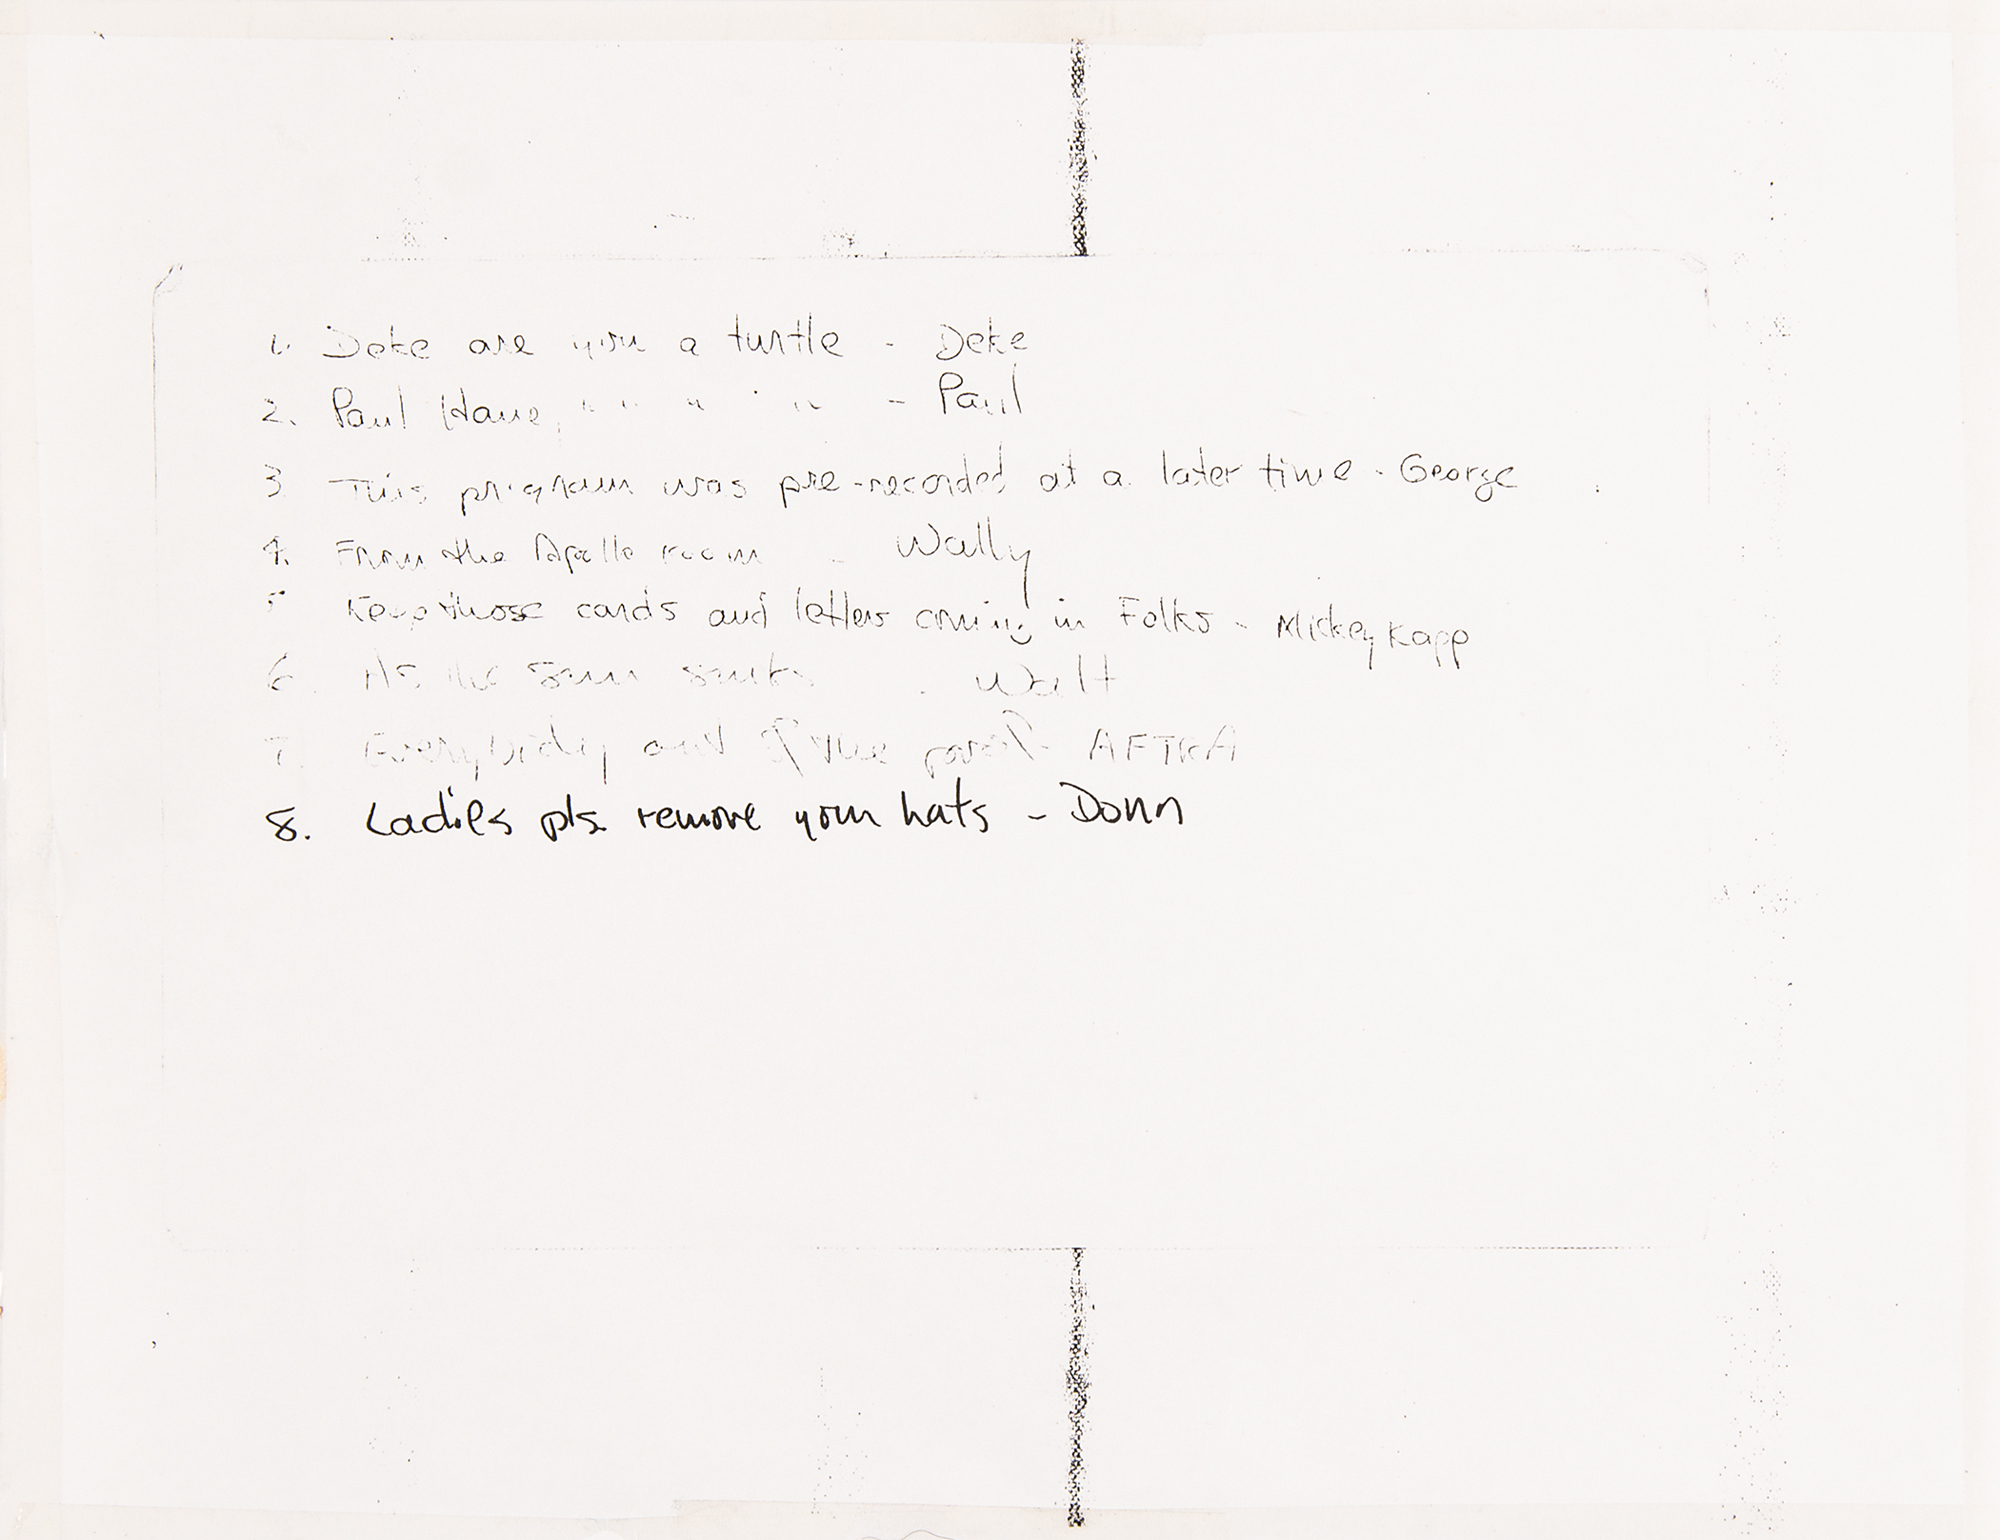 1. Deke are you a turtle - Deke
2. Paul Hane, " " " " " - Paul
3 This program was pre-recorded at a later time - George
4. From the Apollo room - Wally
5 Keep those cards and letters coming in Folks - Mickey Kapp
6. As the sun sinks - Walt
7. Everybody out of the pool - AFTRA
8. Ladies pls. remove your hats - Donn